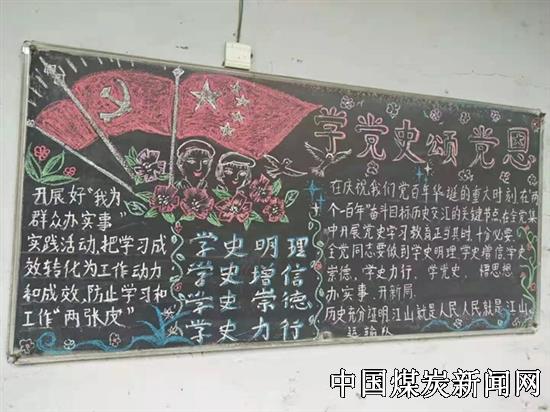 学党史颂党恩
开展好“我为
群众办实事”
实践活动，把学习成
效转化为工作动力
和成效，防止学习和
工作“两张皮”
学史明理
学史增信
学史崇德
学史力行
在庆祝我们党百年华诞的重大时刻，在“两
个一百年”奋斗目标历史交汇的关键节点，在全党集
中开展党史学习教育正当其时，十分必要。
全党同志要做到学史明理，学史增信，学史
崇德，学史力行，学党史，悟思想，
办实事，开新局，
历史充分证明，江山就是人民，人民就是江山
运输队
中国煤炭新闻网